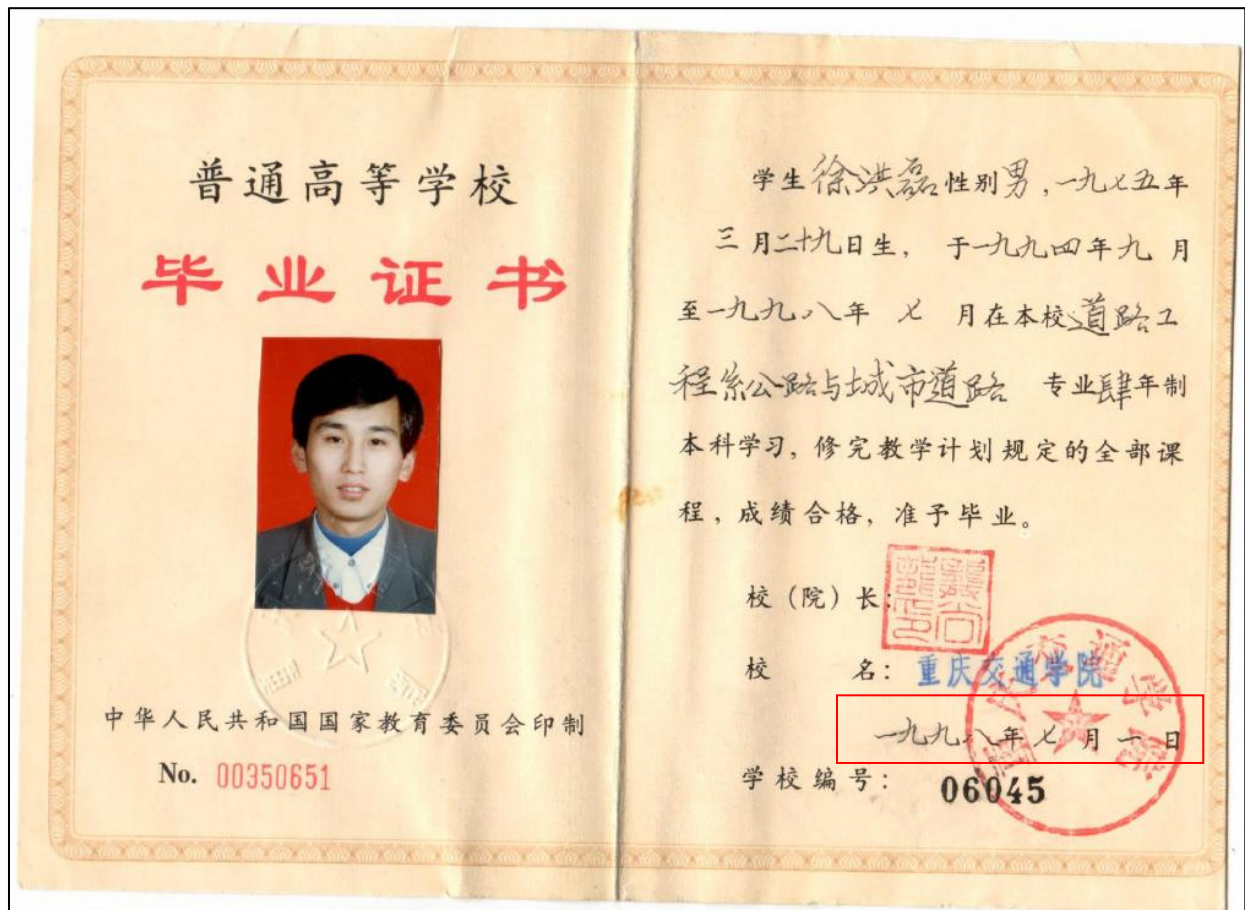 普通高等学校
毕业证书
中华人民共和国国家教育委员会印制
No. 00350651
学生徐洪磊性别男,一九七五年
三月二十九日生, 于一九九四年九月
至一九九八年 七 月在本校道路工
程系公路与城市道路 专业肆年制
本科学习, 修完教学计划规定的全部课
程, 成绩合格, 准予毕业。
校(院)长:
校 名: 重庆交通学院
一九九八年七月一日
学校编号: 06045